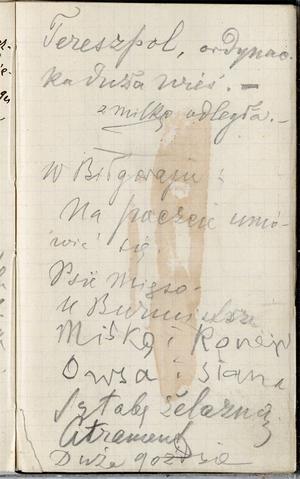 Tereszpol, ordynac.
ka duża wieś. —
2 milkę odległa. —
W Biłgoraju :
Na poczcie umó-
wić się.
Psie mięso
U Burmistrza
Miskę i Konew
Owsa i siana
Sztabę żelazną
Atrament
Duże